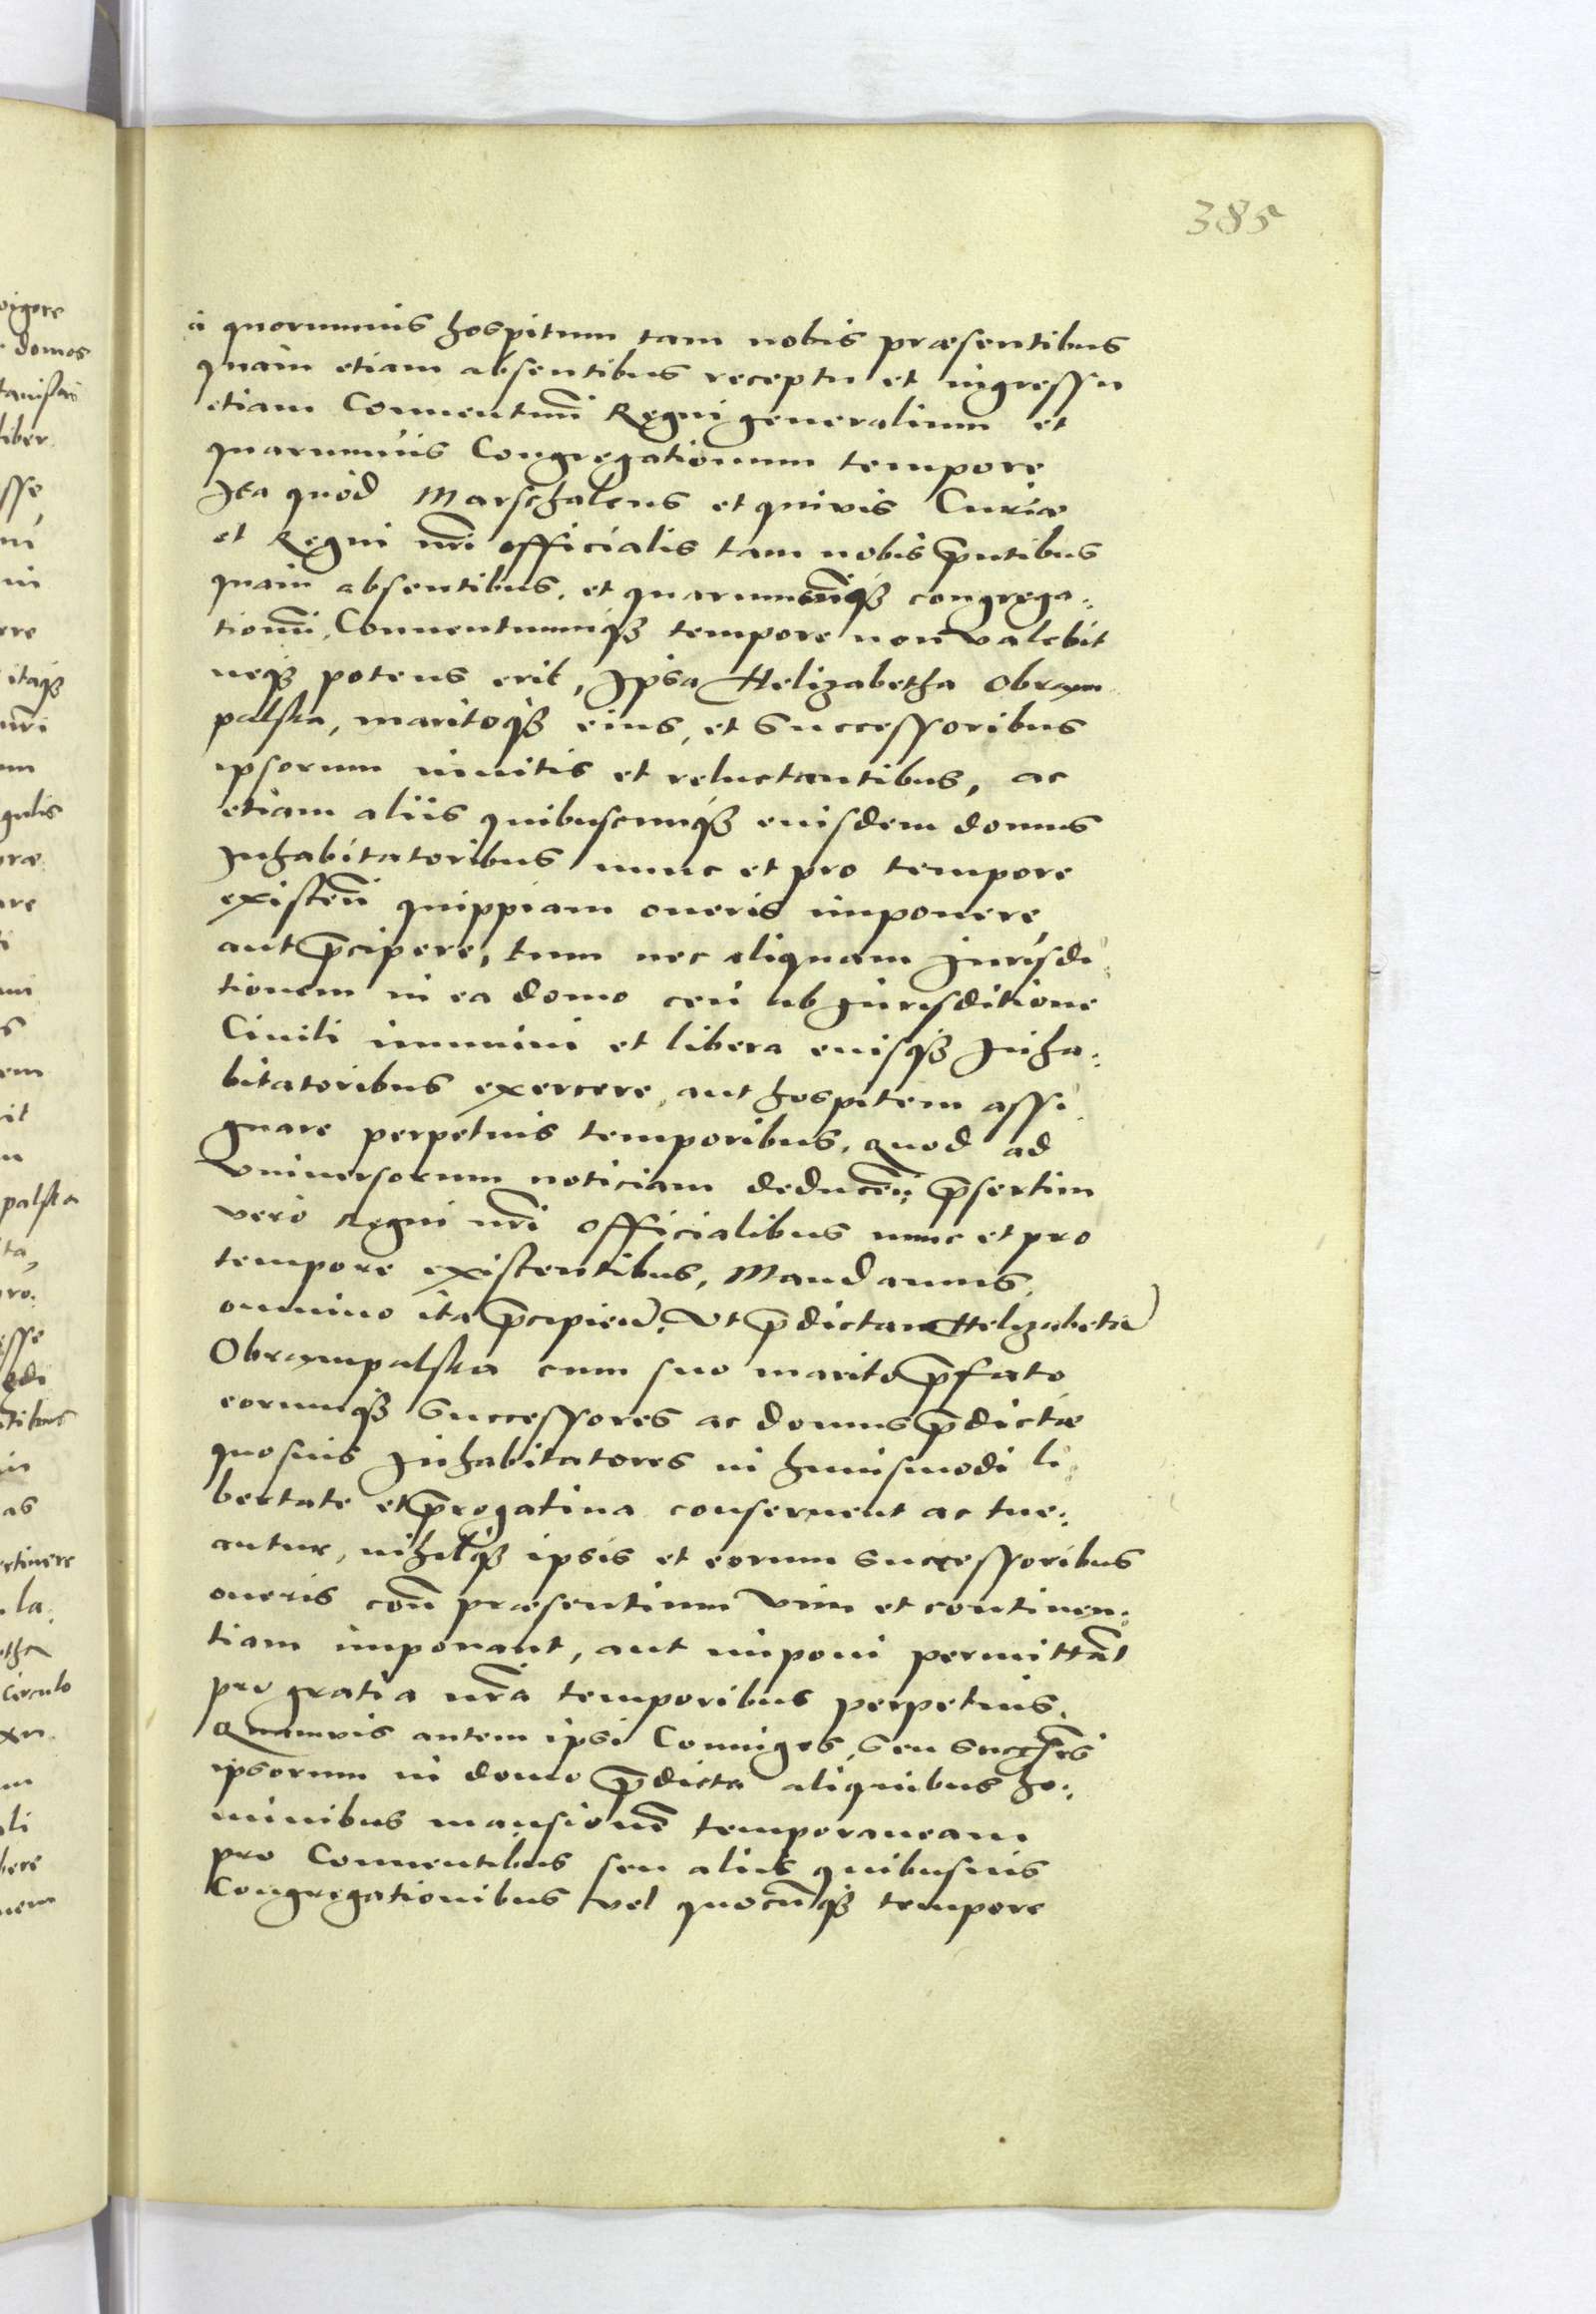 385
à quorumuis hospitum tam nobis præsentibus
quàm etiam absentibus receptu et ingressu
etiam Conuentuũ Regni generalium et
quarumuis Congregationum tempore,
Ita quòd Marschalcus et quiuis Curiæ
et Regni nr̃i officialis tam nobis p̃ntibus
quàm absentibus, et quarumcũq3 congrega:
tionũ, Conuentuumq3 tempore non valebit
neq3 potens erit, Ipsa Helizabetha Obrąm
palska, maritoq3 eius, et Successoribus
ipsorum inuitis et reluctantibus, ac
etiam aliis quibuscunq3 euisdem domus
Inhabitatoribus nunc et pro tempore
existeñ quippiam oneris imponere,
aut p̃cipere, tum nec aliquam Iurisdi:
tionem in ea domo ceu ab Iurisditione
Ciuili immuni et libera eiusq3 Inha:
bitatoribus exercere, aut hospitem assi:
gnare perpetuis temporibus. Quod ad
Vniuersorum noticiam deduceñ: p̃sertim
vero Regni nr̃i officialibus nunc et pro
tempore existentibus, Mandamus,
omnino ita p̃cipieñ. Vt p̃dictam Helizabethã
Obrąmpalska cum suo marito p̃fato
eorumq3 Successores ac domus p̃dictæ
quosuis Inhabitatores in huiusmodi li:
bertate et p̃rogatiua conseruent ac tue:
antur, nihilq3 ipsis et eorum Successoribus
oneris coñ præsentium vim et continen:
tiam imponant, aut imponi permittãt
pro gratia nr̃a temporibus perpetuis.
Quamvis autem ipsi Coniuges, seu Succr̃es
ipsorum in domo p̃dicta aliquibus ho:
minibus mansionẽ temporaneam
pro Conuentibus seu aliis quibusuis
Congregationibus vel quocũq3 tempore